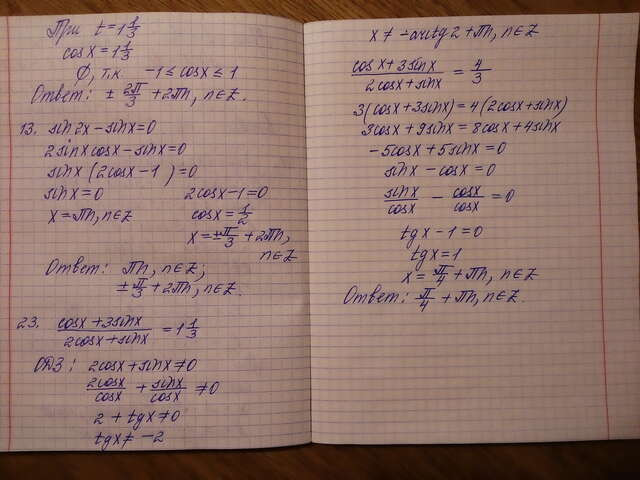 При t = 1 1/3
cosx = 1 1/3
∅, т.к. -1 ≤ cosx ≤ 1
Ответ: ± 2π/3 + 2πn, n∈Z.
13. sin2x - sinx = 0
2sinxcosx - sinx = 0
sinx (2cosx - 1) = 0
sinx = 0 2cosx - 1 = 0
x = πn, n∈Z cosx = 1/2
x = ± π/3 + 2πn,
n∈Z
Ответ: πn, n∈Z;
± π/3 + 2πn, n∈Z.
23. (cosx + 3sinx)/(2cosx + sinx) = 1 1/3
ОДЗ: 2cosx + sinx ≠ 0
2cosx/cosx + sinx/cosx ≠ 0
2 + tgx ≠ 0
tgx ≠ -2
x ≠ -arctg2 + πn, n∈Z
(cosx + 3sinx)/(2cosx + sinx) = 4/3
3(cosx + 3sinx) = 4(2cosx + sinx)
3cosx + 9sinx = 8cosx + 4sinx
-5cosx + 5sinx = 0
sinx - cosx = 0
sinx/cosx - cosx/cosx = 0
tgx - 1 = 0
tgx = 1
x = π/4 + πn, n∈Z
Ответ: π/4 + πn, n∈Z.